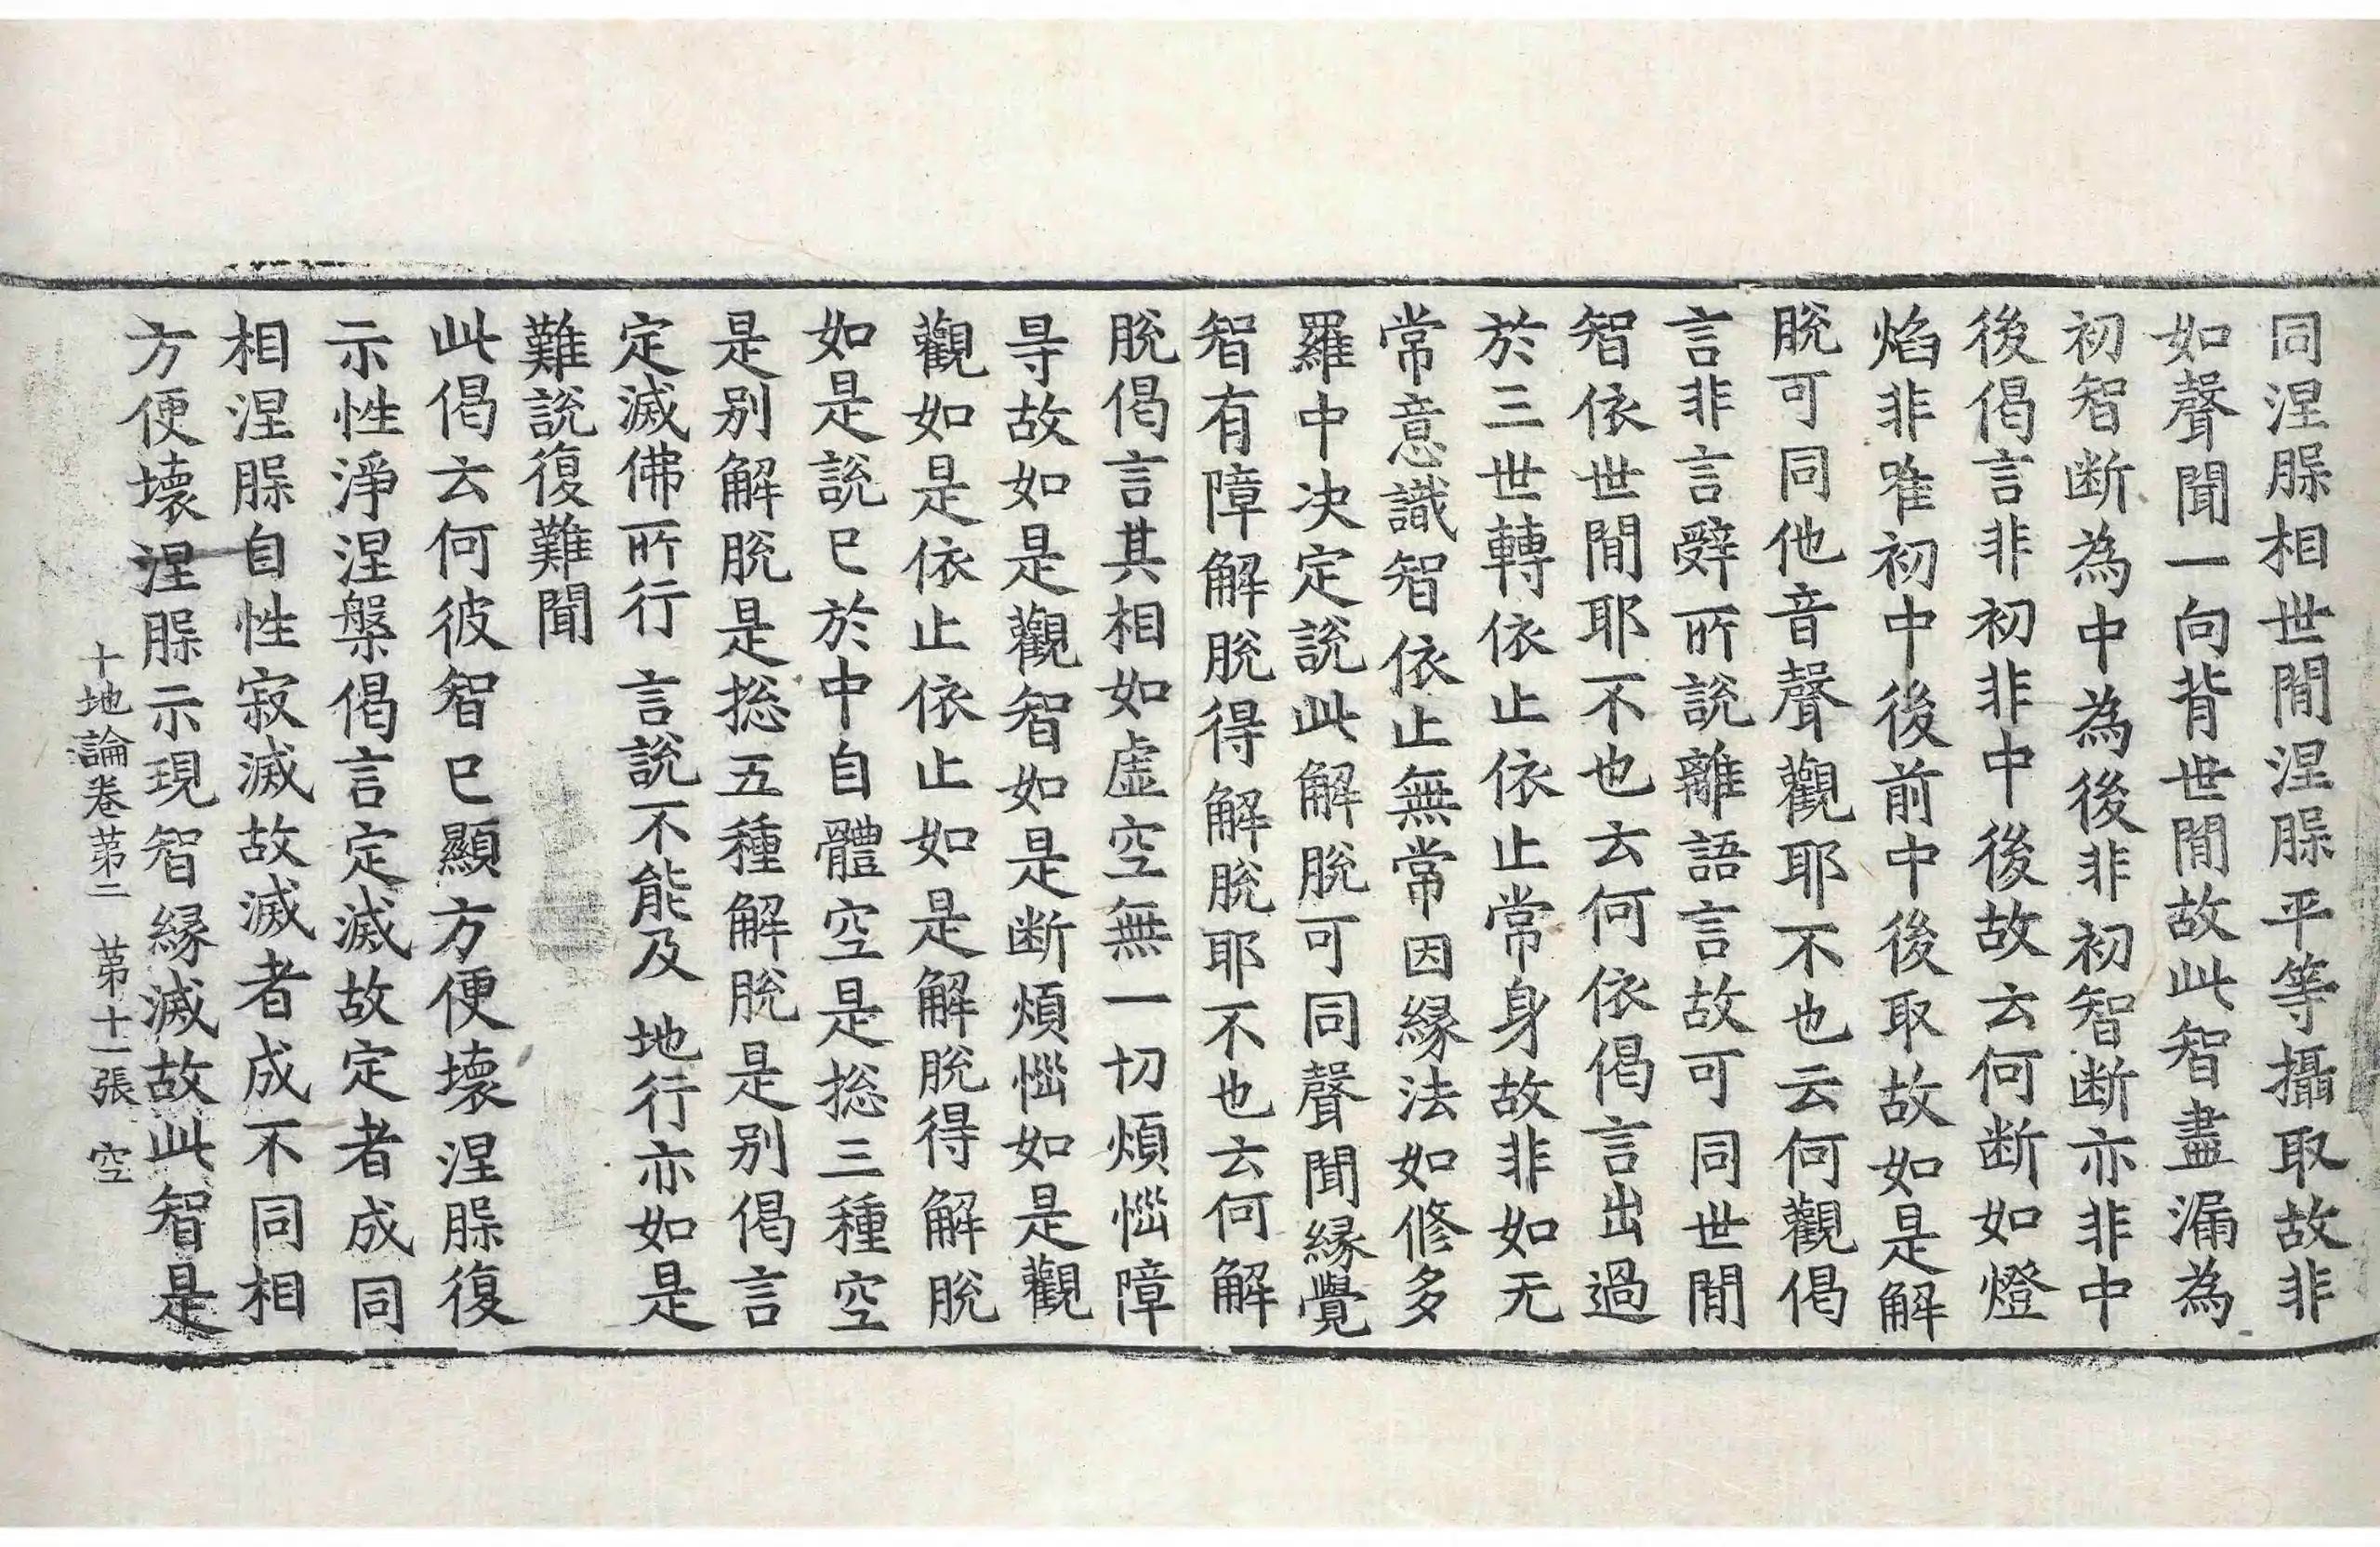 同涅槃相世間涅槃平等攝取故非
如聲聞一向背世間故此智盡漏為
初智断為中為後非初智断亦非中
後偈言非初非中後故云何断如燈
焰非唯初中後前中後取故如是解
脫可同他音聲觀耶不也云何觀偈
言非言辝所說離語言故可同世間
智依世間耶不也云何依偈言出過
於三世轉依止依止常身故非如无
常意識智依止無常因緣法如修多
羅中决定說此解脫可同聲聞緣覺
智有障解脫得解脫耶不也云何解
脫偈言其相如虛空無一切煩惱障
㝵故如是觀智如是断煩惱如是觀
觀如是依止依止如是解脫得解脫
如是說已於中自體空是捴三種空
是別解脫是捴五種解脫是別偈言
定滅佛所行　言說不能及　地行亦如是
難說復難聞
此偈云何彼智已顯方便壞涅槃復
示性淨涅槃偈言定滅故定者成同
相涅槃自性寂滅故滅者成不同相
方便壞涅槃示現智緣滅故此智是
十地論卷苐二　苐十一張　空